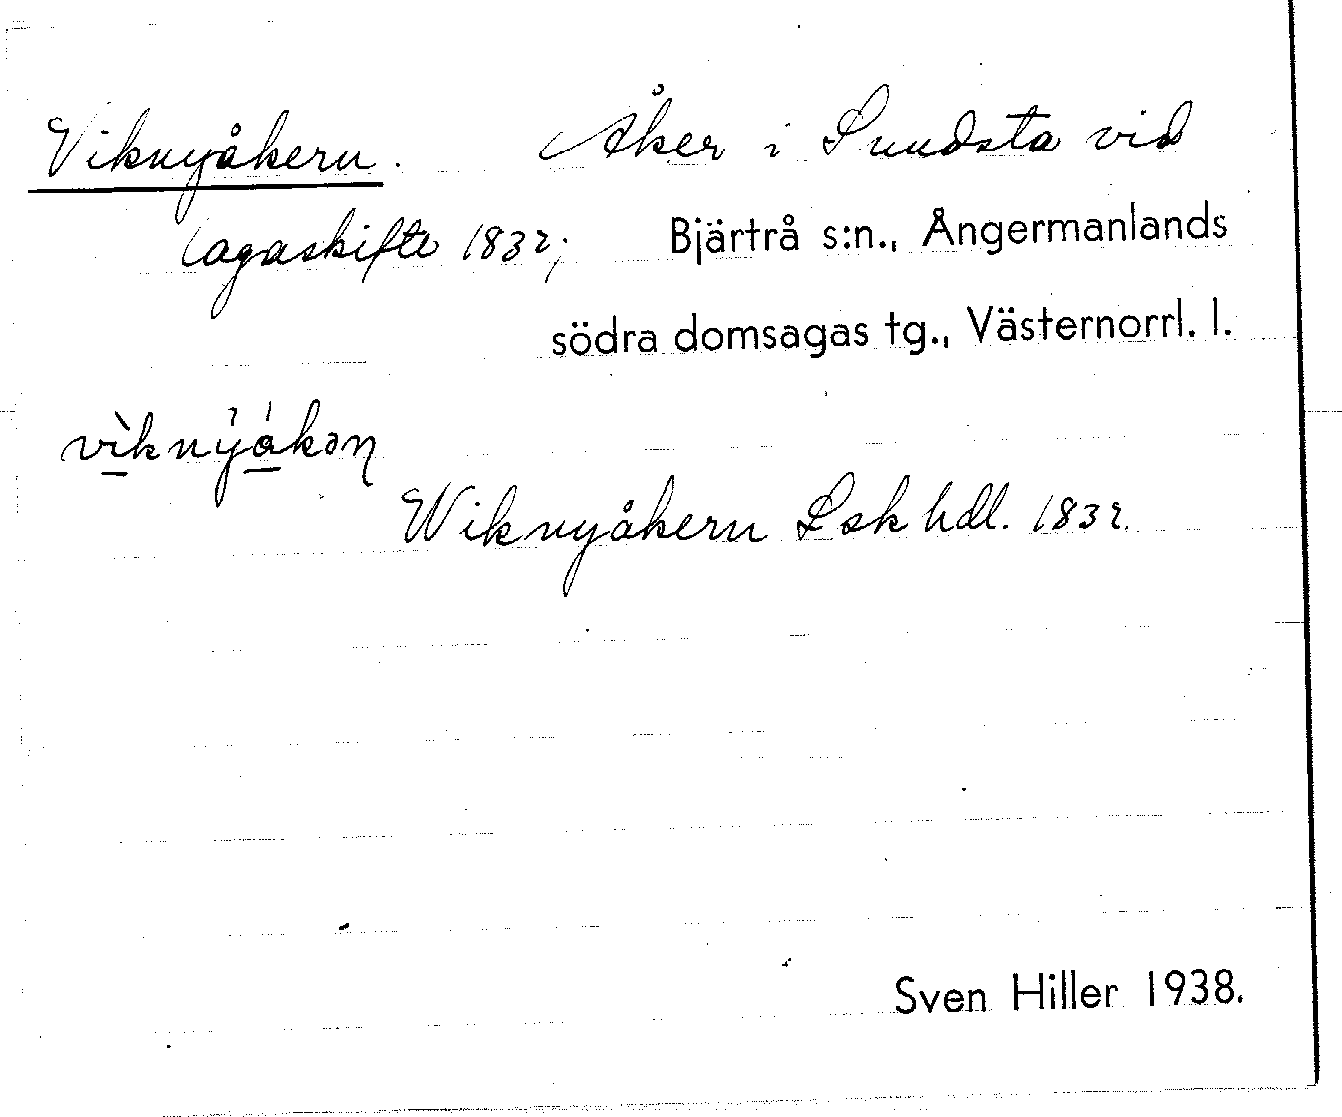 Viknyåkern. Åker i Sundsta vid
lagaskifte 1832; Bjärtrå s:n., Ångermanlands
södra domsagas tg., Västernorrl. l.
vìknyákən
Wiknyåkern Lsk hdl. 1832.
Sven Hiller 1938.